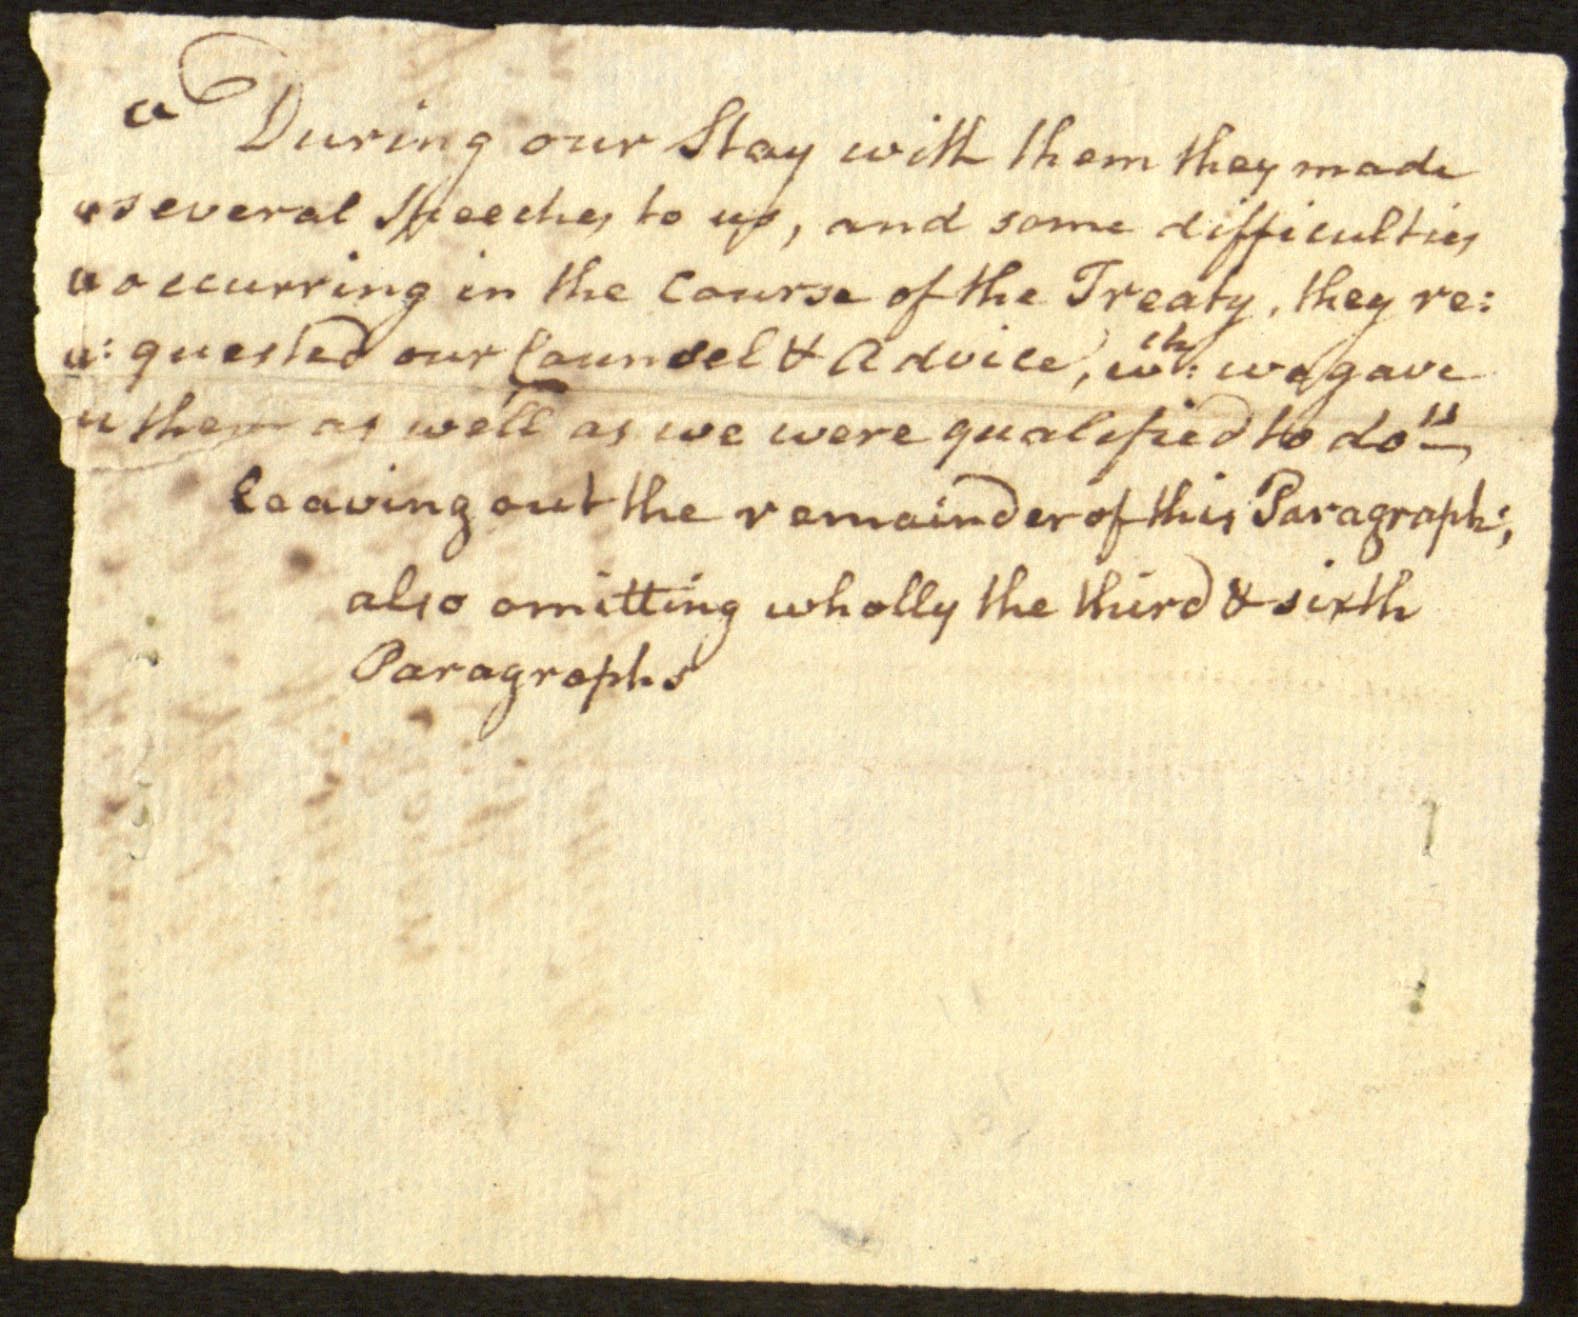 " During our Stay with them they made
" several Speeches to us, and some difficulties
" occurring in the Course of the Treaty, they re:
" : quested our Counsel & Advice, wch: we gave
" them as well as we were qualified to do"—
leaving out the remainder of this Paragraph;
also omitting wholly the third & sixth
Paragraphs